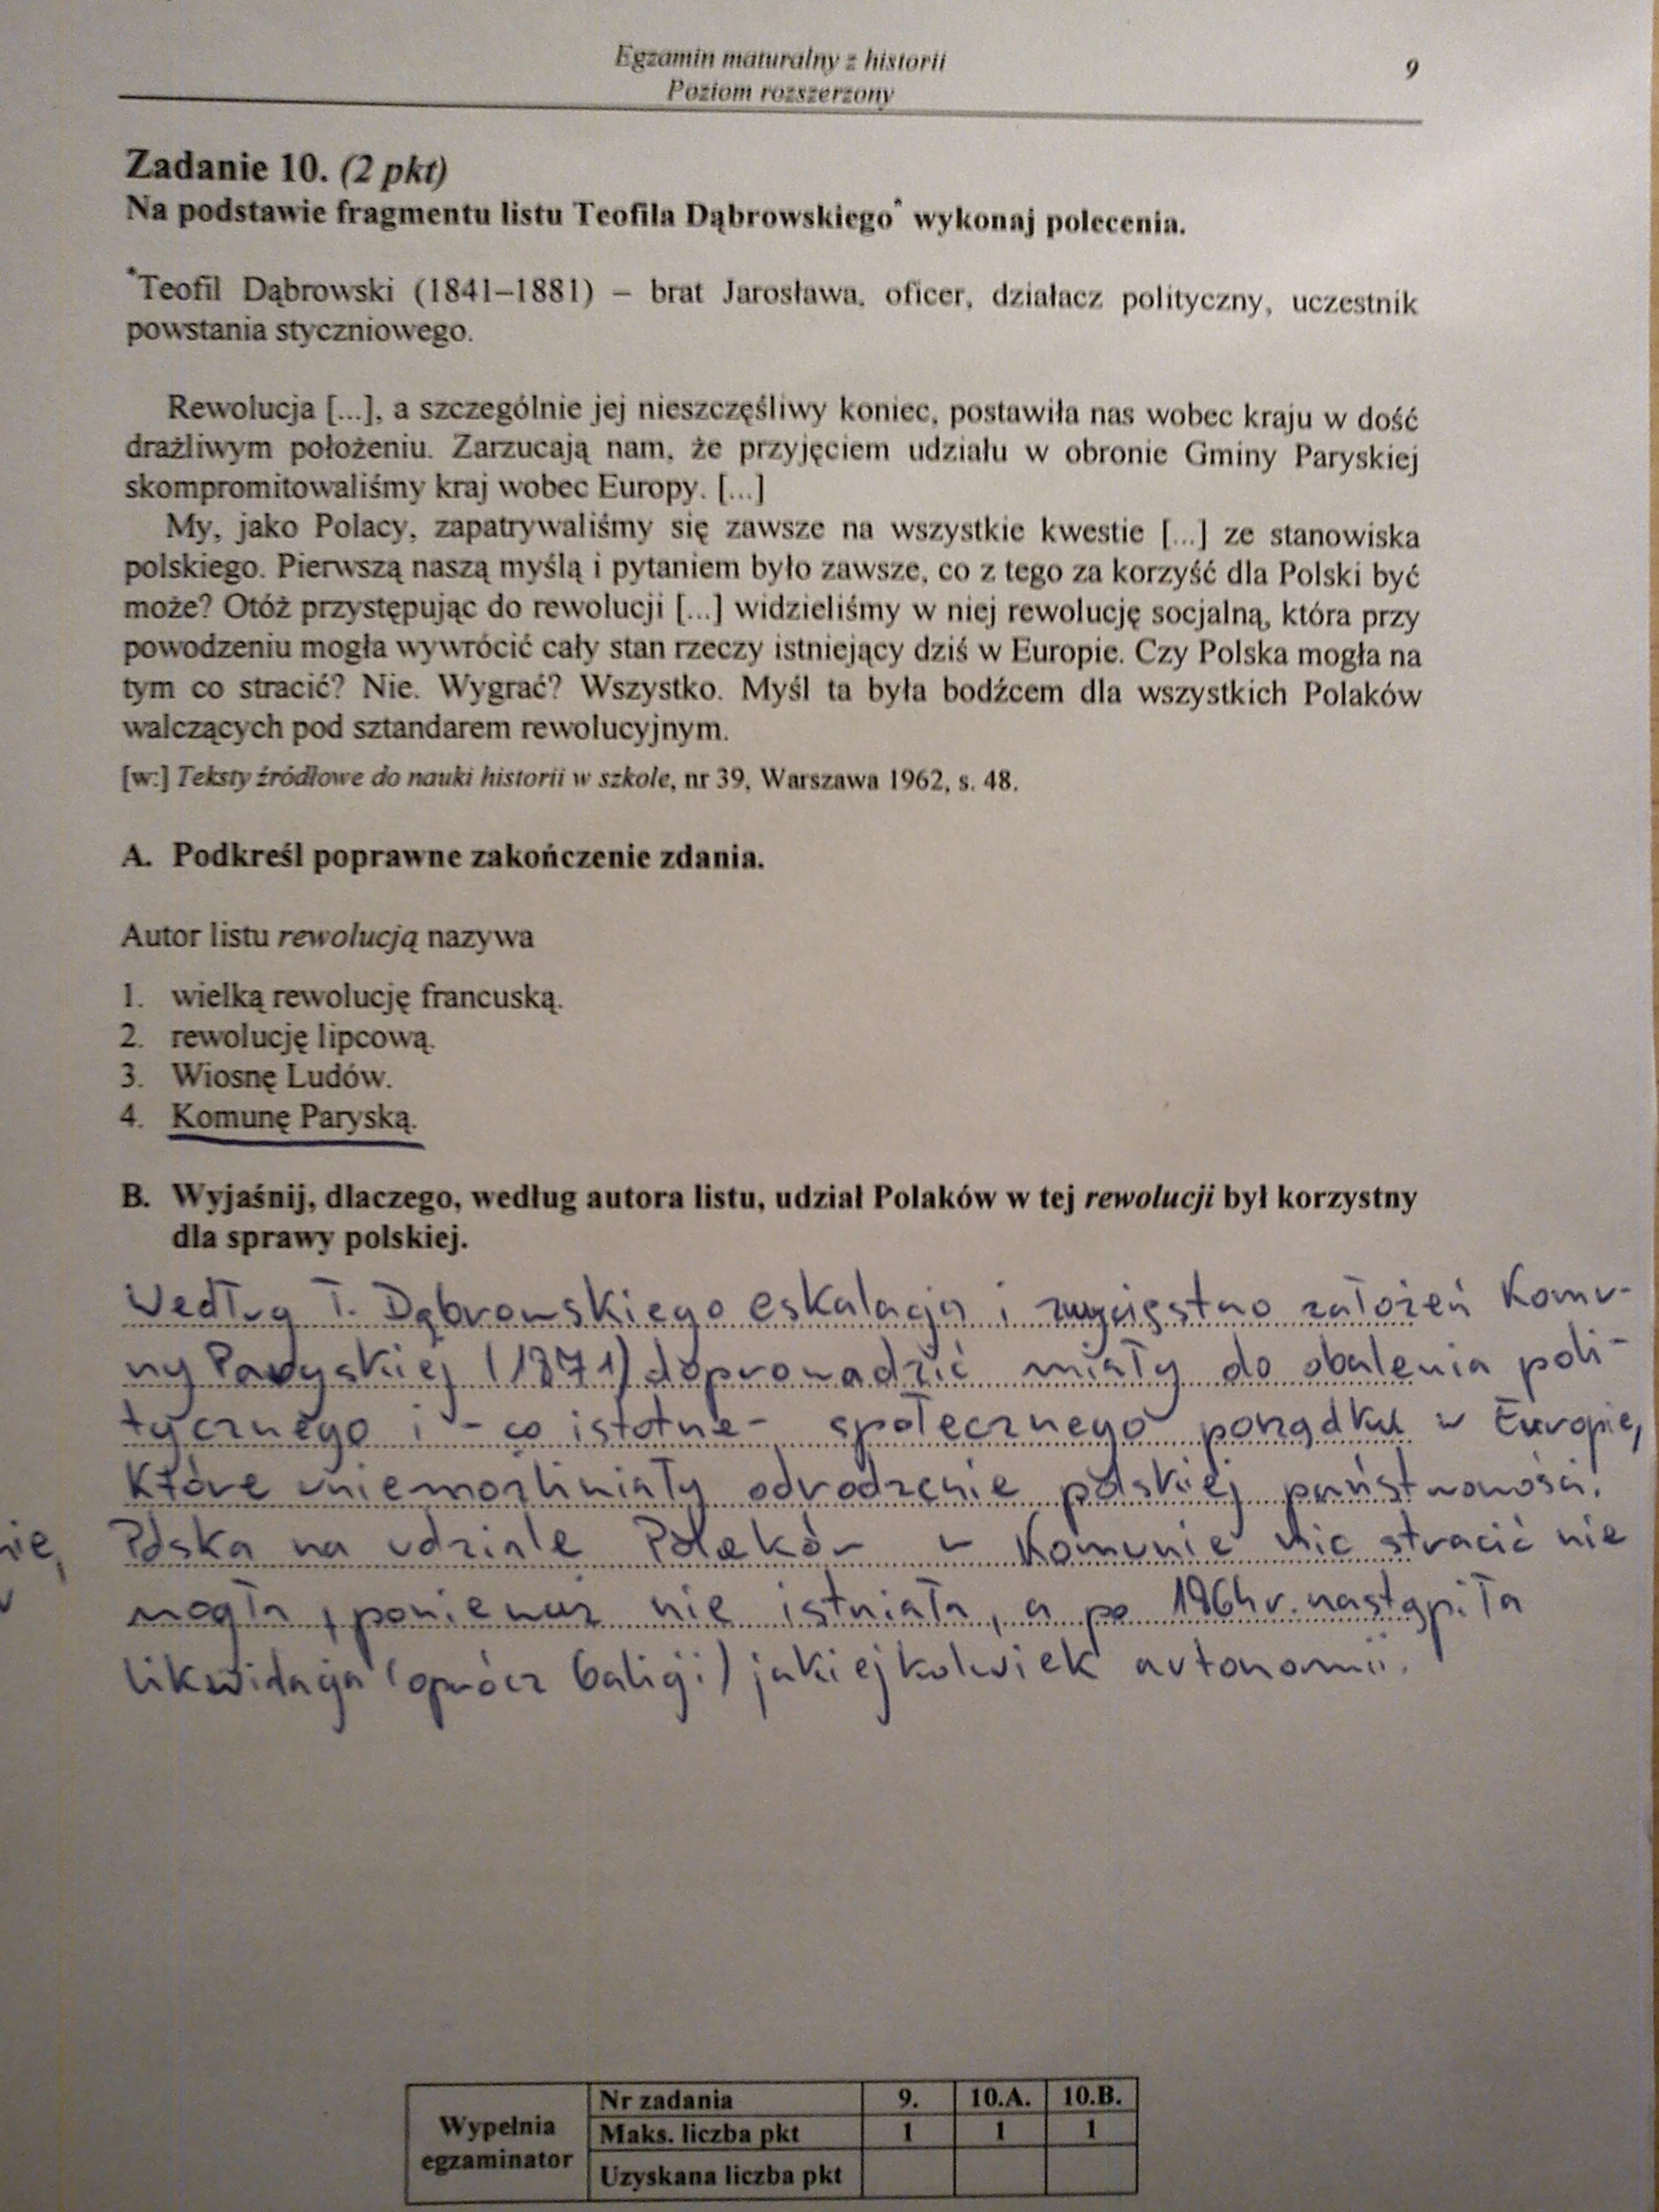 Egzamin maturalny z historii
Poziom rozszerzony
9
Zadanie 10. (2 pkt)
Na podstawie fragmentu listu Teofila Dąbrowskiego* wykonaj polecenia.
*Teofil Dąbrowski (1841–1881) – brat Jarosława, oficer, działacz polityczny, uczestnik
powstania styczniowego.
Rewolucja [...], a szczególnie jej nieszczęśliwy koniec, postawiła nas wobec kraju w dość
drażliwym położeniu. Zarzucają nam, że przyjęciem udziału w obronie Gminy Paryskiej
skompromitowaliśmy kraj wobec Europy. [...]
My, jako Polacy, zapatrywaliśmy się zawsze na wszystkie kwestie [...] ze stanowiska
polskiego. Pierwszą naszą myślą i pytaniem było zawsze, co z tego za korzyść dla Polski być
może? Otóż przystępując do rewolucji [...] widzieliśmy w niej rewolucję socjalną, która przy
powodzeniu mogła wywrócić cały stan rzeczy istniejący dziś w Europie. Czy Polska mogła na
tym co stracić? Nie. Wygrać? Wszystko. Myśl ta była bodźcem dla wszystkich Polaków
walczących pod sztandarem rewolucyjnym.
[w:] Teksty źródłowe do nauki historii w szkole, nr 39, Warszawa 1962, s. 48.
A. Podkreśl poprawne zakończenie zdania.
Autor listu rewolucją nazywa
1. wielką rewolucję francuską.
2. rewolucję lipcową.
3. Wiosnę Ludów.
4. Komunę Paryską.
B. Wyjaśnij, dlaczego, według autora listu, udział Polaków w tej rewolucji był korzystny
dla sprawy polskiej.
Według T. Dąbrowskiego eskalacja i zwycięstwo założeń Komu-
ny Paryskiej (1871) doprowadzić miały do obalenia poli-
tycznego i - co istotne - społecznego porządku w Europie,
które uniemożliwiały odrodzenie polskiej państwowości.
Polska na udziale Polaków w Komunie nic stracić nie
mogła, ponieważ nie istniała, a po 1864 r. nastąpiła
likwidacja (oprócz Galicji) jakiejkolwiek autonomii.
Wypełnia
egzaminator
Nr zadania 9. 10.A. 10.B.
Maks. liczba pkt 1 1 1
Uzyskana liczba pkt